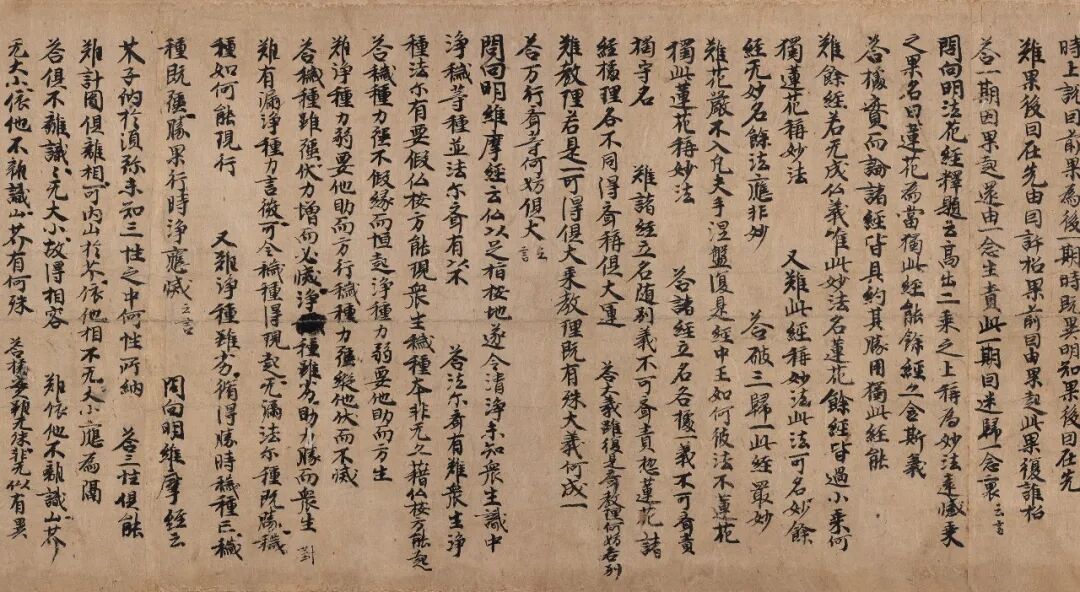 時上說因前果為後一期時既異明知果後因在先
難果後因在先由因許招果前由果起此果復誰招
答一期因果起還由一念生責此一期因迷歸一念裏云々言
問曰明法花經釋題云高出二乘之上稱為妙法蓮
之果名曰蓮花為當獨此經能餘經之全斯義
答據實而論諸經皆具約其勝用獨此經能
難餘經若无成仏義唯此妙法名蓮花餘經皆過小乘何
獨蓮花稱妙法 又難此經稱妙法此法可名妙餘
經无妙名餘法應非妙 答破三歸一此經最妙
難花嚴不入凡夫手涅盤復是經中王如何彼法不蓮花
獨此蓮花稱妙法 答諸經立名各據一義不可齊責
獨守名 難諸經立名随別義不可齊責惣蓮花諸
經據理各不同得齊稱俱大運 答大義雖復是齊教理何妨各別
難教理若是一可得俱大乘教理既有殊大義何成一
答万行齊等何妨俱大
問曰明維摩經云仏以足指按地遂令清淨未知衆生識中
淨穢等種並法尒齊有以不 答法尒齊有難衆生淨
種法尒有要假仏按方能現衆生穢種本非无之藉仏按方能起
答穢種力強不假緣而恒起淨種力弱要他助而方生
難淨種力弱要他助而方行穢種力強縱他伏而不滅
答穢種雖強伏力增而必滅淨種雖劣助力勝而衆生
難有漏淨種力言微可令穢種得現起无漏法尒種既勝穢
種如何能現行 又難淨種雖劣猶得勝時穢種亡穢
種既強勝果行時淨應滅云々言 問曰明維摩經云
芥子納於湏弥未知三性之中何性所納 答三性俱能
難計圓俱離相可內山於芥依他相不无大小應為隔
答俱不離識々无大小故得相容 難依他不離識山芥
无大小依他不離識山芥有何殊